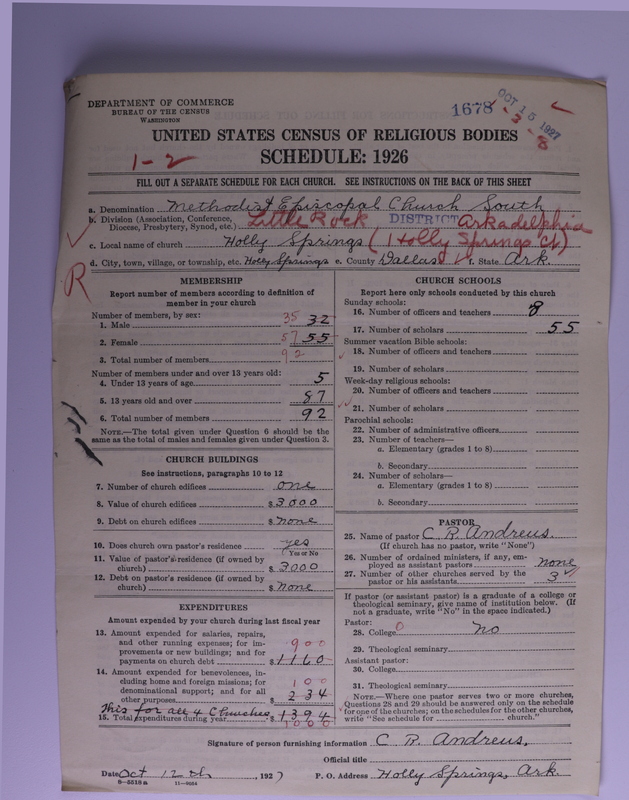 DEPARTMENT OF COMMERCE
BUREAU OF THE CENSUS
WASHINGTON
1678
OCT 15 1927
- 3
- 8
UNITED STATES CENSUS OF RELIGIOUS BODIES
1-2
SCHEDULE: 1926
FILL OUT A SEPARATE SCHEDULE FOR EACH CHURCH. SEE INSTRUCTIONS ON THE BACK OF THIS SHEET
a. Denomination Methodist Episcopal Church South
b. Division (Association, Conference, Diocese, Presbytery, Synod, etc.) Little Rock DISTRICT Arkadelphia
c. Local name of church Holly Springs (Holly Springs Ct)
d. City, town, village, or township, etc. Holly Springs e. County Dallas f. State Ark.
R
MEMBERSHIP
Report number of members according to definition of
member in your church
Number of members, by sex:
1. Male 35 32
2. Female 57 55
3. Total number of members 92
Number of members under and over 13 years old:
4. Under 13 years of age 5
5. 13 years old and over 87
6. Total number of members 92
NOTE.—The total given under Question 6 should be
same as the total of males and females given under Question 3.
CHURCH BUILDINGS
See instructions, paragraphs 10 to 12
7. Number of church edifices one
8. Value of church edifices $3000
9. Debt on church edifices $none
10. Does church own pastor's residence yes
Yes or No
11. Value of pastor's residence (if owned by
church) $3000
12. Debt on pastor's residence (if owned by
church) $none
EXPENDITURES
Amount expended by your church during last fiscal year
13. Amount expended for salaries, repairs,
and other running expenses; for im-
provements or new buildings; and for 900
payments on church debt $1160
14. Amount expended for benevolences, in-
cluding home and foreign missions; for
denominational support; and for all 100
other purposes $234
This for all 4 Churches
15. Total expenditures during year $1394
1000
CHURCH SCHOOLS
Report here only schools conducted by this church
Sunday schools:
16. Number of officers and teachers 8
17. Number of scholars 55
Summer vacation Bible schools:
18. Number of officers and teachers
19. Number of scholars
Week-day religious schools:
20. Number of officers and teachers
21. Number of scholars
Parochial schools:
22. Number of administrative officers
23. Number of teachers—
a. Elementary (grades 1 to 8)
b. Secondary
24. Number of scholars—
a. Elementary (grades 1 to 8)
b. Secondary
PASTOR
25. Name of pastor C. R. Andreus.
(If church has no pastor, write "None")
26. Number of ordained ministers, if any, em-
ployed as assistant pastors none
27. Number of other churches served by the
pastor or his assistants 3
If pastor (or assistant pastor) is a graduate of a college or
theological seminary, give name of institution below. (If
not a graduate, write "No" in the space indicated.)
Pastor:
28. College 0 no
29. Theological seminary
Assistant pastor:
30. College
31. Theological seminary
NOTE.—Where one pastor serves two or more churches,
Questions 28 and 29 should be answered only on the schedule
for one of the churches; on the schedules for the other churches,
write "See schedule for church."
Signature of person furnishing information C R Andreus.
Official title
Date Oct 12th, 1927 P. O. Address Holly Springs, Ark.
8-5518a 11-9024